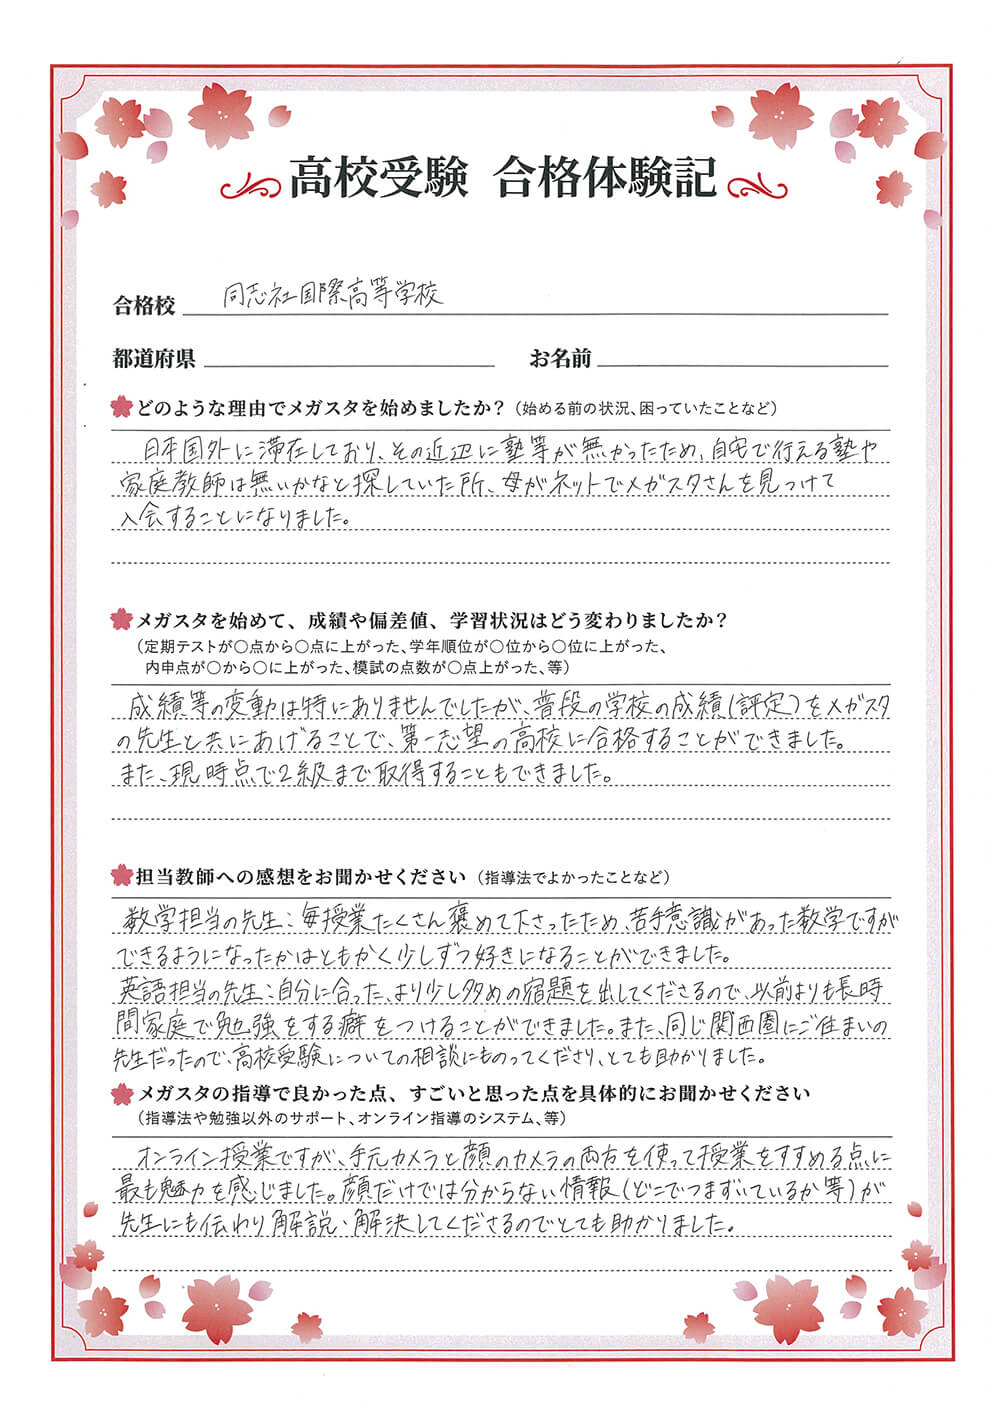 高校受験 合格体験記
合格校 同志社国際高等学校
都道府県 お名前
どのような理由でメガスタを始めましたか？（始める前の状況、困っていたことなど）
日本国外に滞在しており、その近辺に塾等が無かったため、自宅で行える塾や
家庭教師は無いかなと探していた所、母がネットでメガスタさんを見つけて
入会することになりました。
メガスタを始めて、成績や偏差値、学習状況はどう変わりましたか？
（定期テストが○点から○点に上がった、学年順位が○位から○位に上がった、
内申点が○から○に上がった、模試の点数が○点上がった、等）
成績等の変動は特にありませんでしたが、普段の学校の成績(評定)をメガスタ
の先生と共にあげることで、第一志望の高校に合格することができました。
また、現時点で2級まで取得することもできました。
担当教師への感想をお聞かせください（指導法でよかったことなど）
数学担当の先生：毎授業たくさん褒めて下さったため、苦手意識があった数学ですが
できるようになったかはともかく少しずつ好きになることができました。
英語担当の先生：自分に合った、より少し多めの宿題を出してくださるので、以前よりも長時
間家庭で勉強をする癖をつけることができました。また、同じ関西圏にご住まいの
先生だったので、高校受験についての相談にものってくださり、とても助かりました。
メガスタの指導で良かった点、すごいと思った点を具体的にお聞かせください
（指導法や勉強以外のサポート、オンライン指導のシステム、等）
オンライン授業ですが、手元カメラと顔のカメラの両方を使って授業をすすめる点に
最も魅力を感じました。顔だけでは分からない情報(どこでつまずいているか等)が
先生にも伝わり解説・解決してくださるのでとても助かりました。